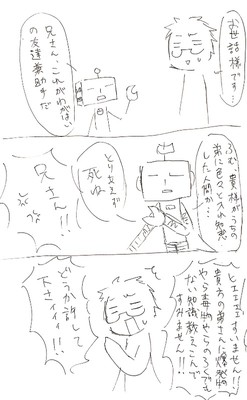 お世話様です…
兄さん、これがわがはい
の友達兼助手だ
ふむ、貴様がうちの
弟に色々と入れ知恵
した人間か…
とりあえず
死ね
兄さん!!
ヒエエエエすいません!!
貴方の弟さんに爆発物
やら毒物やらのろくでも
ない知識教えこんで
すみません!!
どうか許して
下さイィィィ!!